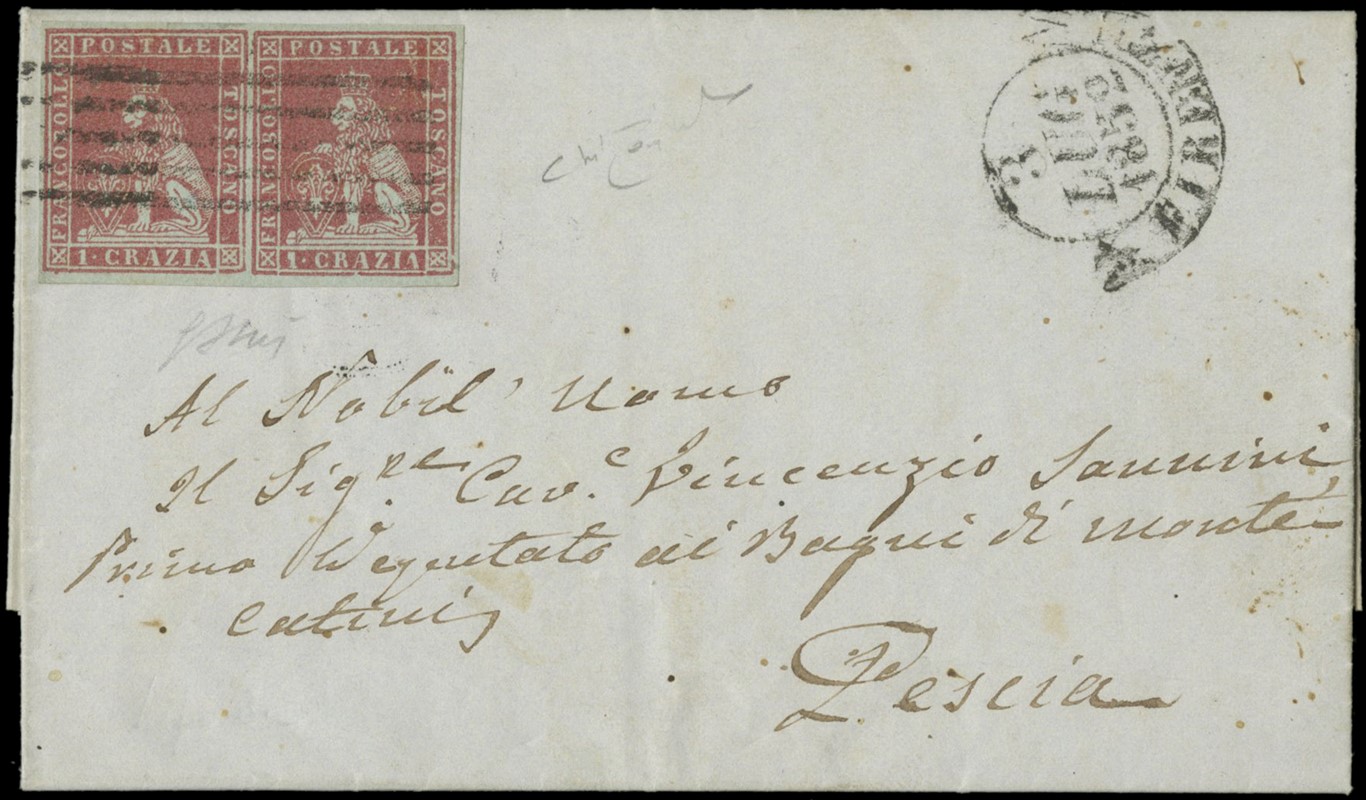 POSTALE POSTALE
FRANCOBOLLO TOSCANO FRANCOBOLLO TOSCANO
1·CRAZIA 1·CRAZIA
FIRENZE
3
LUG
1852
Al Nobil' Uomo
Il Sigre. Cav.e Vincenzio Sannini
Primo Deputato ai Bagni di Monte
Catini
Pescia